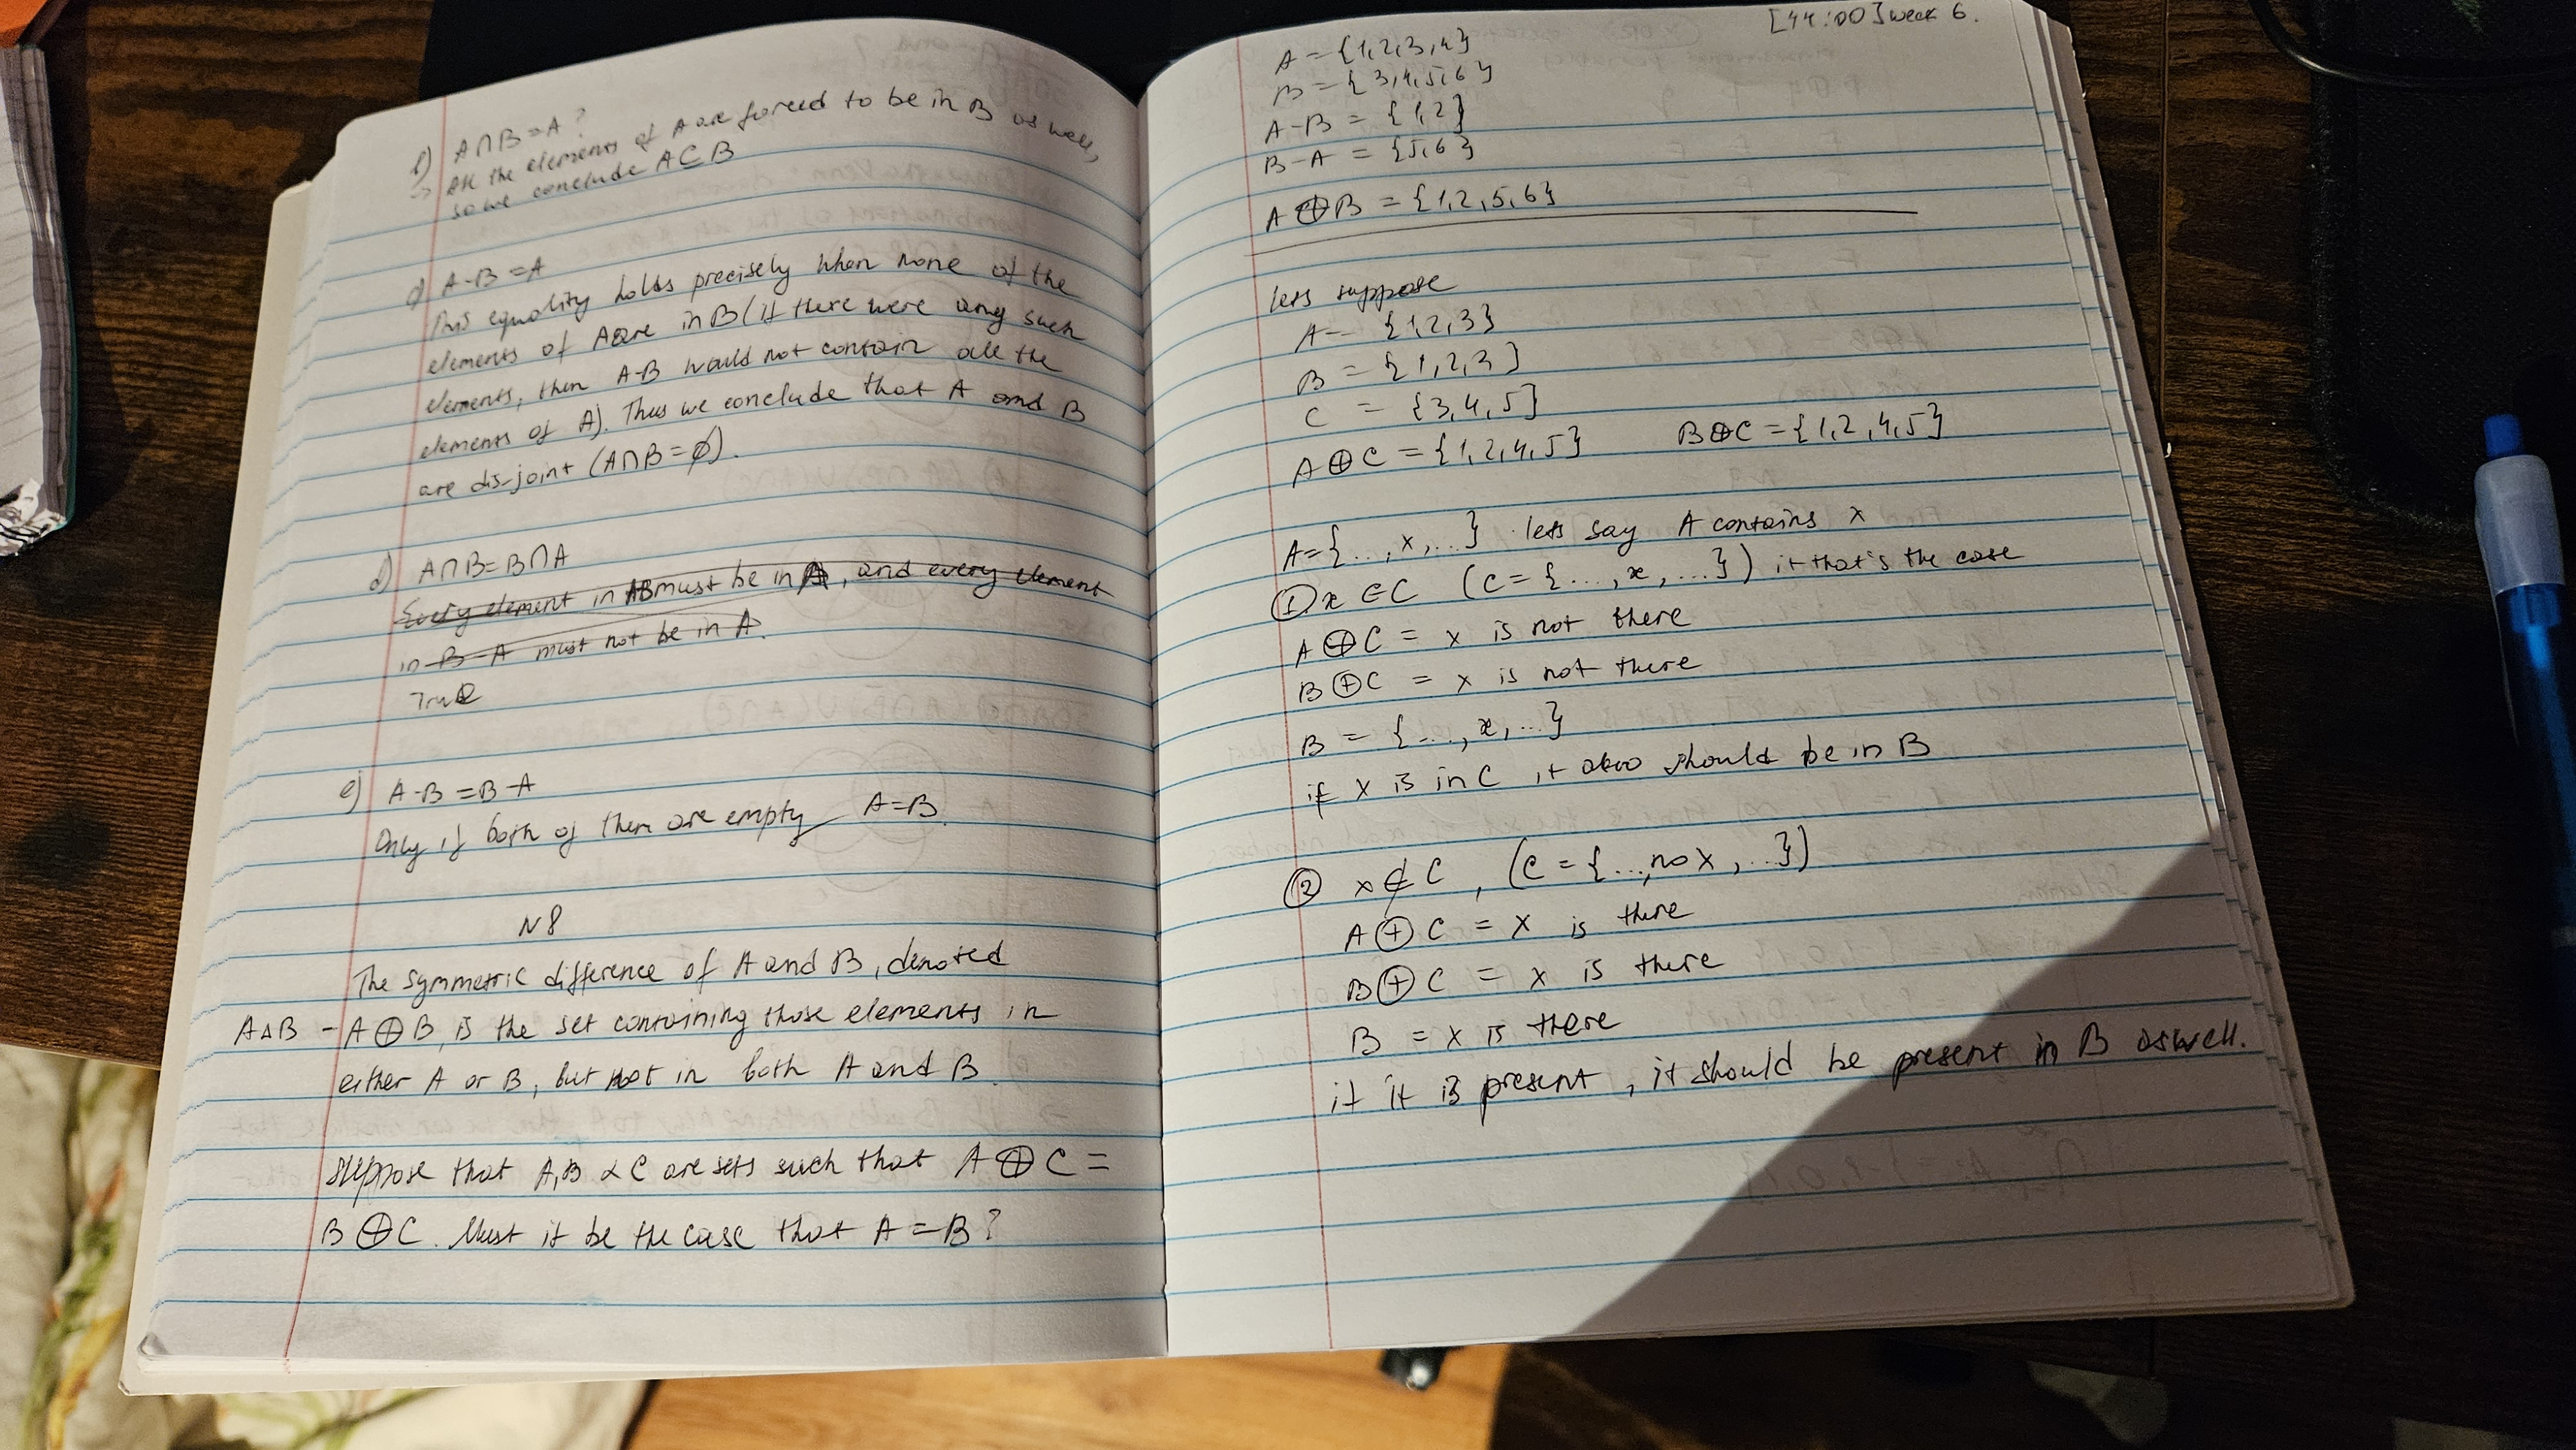 b) A∩B=A?
=> All the elements of A are forced to be in B as well
so we conclude A⊂B
c) A-B=A
This equality holds precisely when none of the
elements of A are in B (if there were any such
elements, then A-B would not contain all the
elements of A). Thus we conclude that A and B
are disjoint (A∩B=∅).
d) A∩B=B∩A
Every element in AB must be in A, and every element
in B-A must not be in A.
True
e) A-B=B-A
Only if both of them are empty A=B.
N8
The symmetric difference of A and B, denoted
A△B - A⊕B, is the set containing those elements in
either A or B, but not in both A and B.
Suppose that A, B & C are sets such that A⊕C =
B⊕C. Must it be the case that A=B?
[44:00] week 6.
A={1,2,3,4}
B={3,4,5,6}
A-B = {1,2}
B-A = {5,6}
A⊕B = {1,2,5,6}
lets suppose
A= {1,2,3}
B = {1,2,3}
C = {3,4,5}
A⊕C = {1,2,4,5} B⊕C = {1,2,4,5}
A={...,x,...} lets say A contains x
① x∈C (C={...,x,...}) if that's the case
A⊕C = x is not there
B⊕C = x is not there
B = {...,x,...}
if x is in C it also should be in B
② x∉C, (C={...,no x,...})
A⊕C = x is there
B⊕C = x is there
B = x is there
if it is present, it should be present in B aswell.